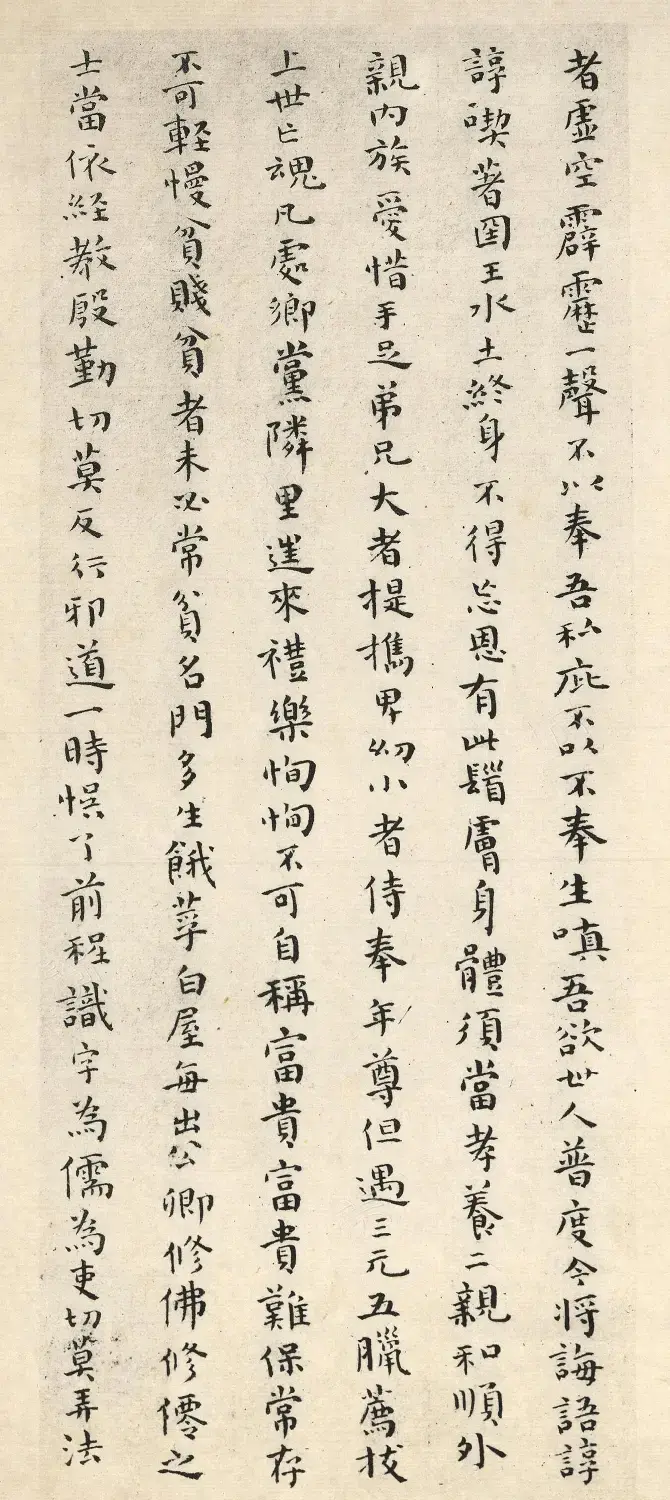 者虛空霹靂一聲不以奉吾私庇不以不奉生嗔吾欲世人普度今將誨語諄
諄喫著國王水土終身不得忘恩有此髭膚身體須當孝養二親和順外
親內族愛惜手足弟兄大者提攜卑幼小者侍奉年尊但遇三元五臘薦拔
上世亡魂凡處鄉黨隣里進來禮樂恂恂不可自稱富貴富貴難保常存
不可輕慢貧賤貧者未必常貧名門多生餓莩白屋每出公卿修佛修僊之
士當依經教殷勤切莫反行邪道一時悞了前程識字為儒為吏切莫弄法